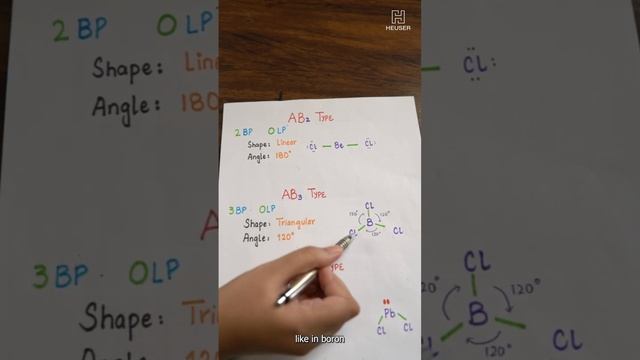 HEUSER
2 BP 0 LP
Shape: Lin
Angle: 180
Cl
AB2 TYPE
2 BP 0 LP
Shape: Linear
Angle: 180°
Cl — Be — Cl
AB3 TYPE
3 BP 0 LP
Shape: Triangular
Angle: 120°
Cl
120° 120°
B
Cl 120° Cl
YPE
Pb
Cl Cl
3 BP 0 LP
Shape: Tri
Angle: 12
Cl
20° 120°
B
120° Cl
like in boron